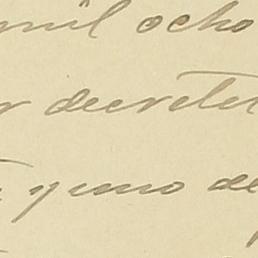 mil ocho
decretet
y uno de